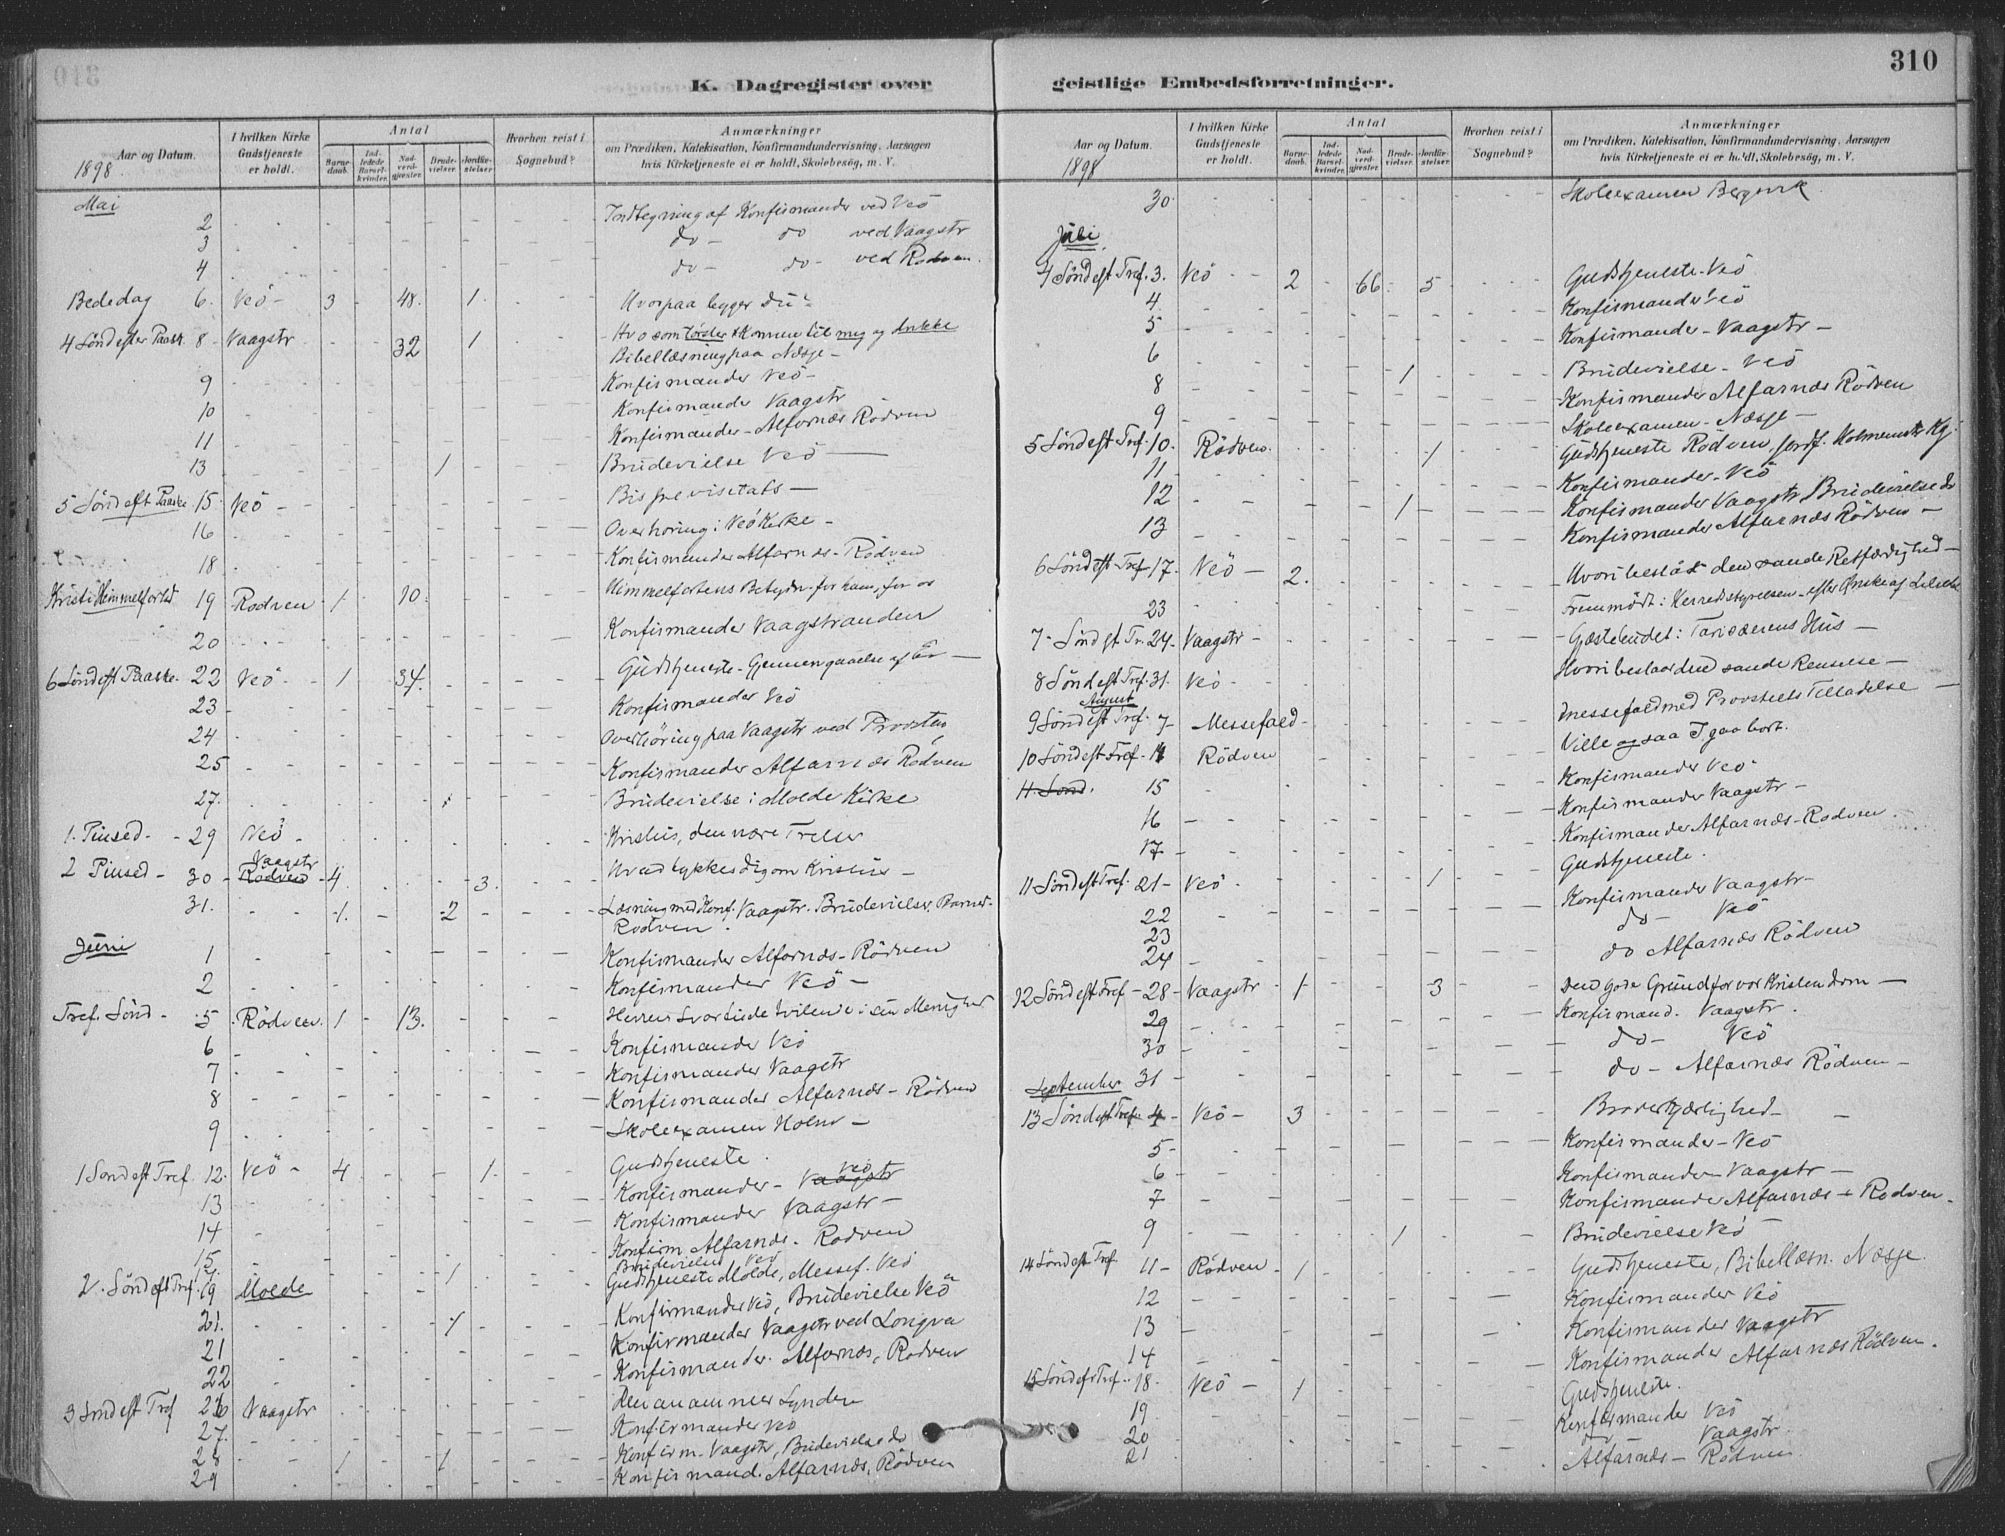 310
K. Dagregister over geistlige Embedsforretninger.
Aar og Datum.
I hvilken Kirke Gudstjeneste er holdt.
Antal
Barnedaab.
Indledede Barselkvinder.
Nadverdgjester.
Brudevielser.
Jordfæstelser.
Hvorhen reist i Sognebud?
Anmærkninger
om Prædiken, Katekisation, Konfirmandundervisning, Aarsagen
hvis Kirketjeneste ei er holdt, Skolebesög, m. V.
1898.
Mai
2 Indtegning af Konfirmander ved Veö
3 do - do ved Vaagstr
4 do - do - ved Rodven.
Bededag 6. Veö - 3 48. 1. Hvorpaa bygger Du?
4 Sönd efter Paask. 8 - Vaagstr 32 1 Hvo som törster komme til mig og drikke
Bibellæsning paa Næsje -
9 Konfirmander Veö -
10 Konfirmander Vaagstr
11 Konfirmander - Alfarnæs Rödven
13 1 Brudevielse Veö -
5 Sönd eft Paaske 15 - Veö - Bispevisitats -
16 Overhöring i Veö Kirke -
18 Konfirmander Alfarnæs - Rödven
Kristi Himmelfartsd 19 Rodven 1 10 Himmelfartens Betydn. for ham, for os
20 Konfirmander Vaagstranden
6 Sönd eft Paaske. 22 Veö 1 34. Gudstjeneste - Gjennemgaaelse af
23 Konfirmander Veö
24 Overhöring paa Vaagstr ved Provsten
25 Konfirmander Alfarnæs Rödven
27. 1 Brudevielse i Molde Kirke
1. Pinsed. - 29 Veö - Kristus, den
2 Pinsed - 30 - Vaagstr Rödven - 4 3. Hvad tykkes dig om Kristus -
31. 1. 2 Læsning med Konf. Vaagstr. Brudevielser,
Rodven.
Juni
1 Konfirmander Alfarnæs - Rödven
2 Konfirmander Veö -
Tref. Sönd - 5 Rödven. 1 - 13. Herrens
6 Konfirmander Veö
7 Konfirmander Vaagstr
8 Konfirmander Alfarnæs - Rödven
9 Skoleexamen Holm -
1 Sönd eft Tref. 12. Veö - 4 1. Gudstjeneste.
13 Konfirmander - Vaagstr Veö
14 Konfirmander Vaagstr -
15 Konfirm. Alfarnæs. Rodven
Brudevielse Veö
2. Sönd eft Tref. 19 Molde Gudstjeneste Molde, Messef. Veö
21. 1 Konfirmander Veö, Brudevielse Veö
21 Konfirmander Vaagstr ved Longva
22 Konfirmander. Alfarnæs, Rodven
3 Sönd eft Tref 26 Vaagstr Han annammer Syndere
27. Konfirmander Veö
28 1 1 Konfirm. Vaagstr, Brudevielse do
29 Konfirmand. Alfarnæs, Rödven
Aar og Datum.
I hvilken Kirke Gudstjeneste er holdt.
Antal
Barnedaab.
Indledede Barselkvinder.
Nadverdgjester.
Brudevielser.
Jordfæstelser.
Hvorhen reist i Sognebud?
Anmærkninger
om Prædiken, Katekisation, Konfirmandundervisning, Aarsagen
hvis Kirketjeneste ei er holdt, Skolebesög, m. V.
1898
30. Skoleexamen
Juli
4 Sönd eft Tref. 3. Veö 2 66 5 Gudstjeneste - Veö
4 Konfirmander Veö
5 Konfirmander - Vaagstr -
6 1 Brudevielse - Veö
8 Konfirmander Alfarnæs Rödven
9 Skoleexamen - Næsje -
5 Sönd eft Tref. 10. Rödven. 1 Gudstjeneste Rödven, Jordf.
11 Konfirmander - Veö
12 1 Konfirmander Vaagstr Brudevielse do
13 Konfirmander Alfarnæs Rödven -
6 Sönd eft Tref 17. Veö - 2. Hvori bestaar den sande Retfærdighed -
23 Fremmödt i Herredsstyrelsen - efter Ønske af
7 - Sönd eft Tr. 24 - Vaagstr - Gæstebudet i Farisæerens Hus -
8 Sönd eft Tref. 31. Veö - Hvori bestaar den sande Renselse -
August
9 Sönd eft Tref. 7 - Messefald - Messefald med Provstiets Tilladelse -
10 Sönd eft Tref. 14 Rödven Ville ogsaa I gaa bort.
11. Sönd. 15 Konfirmander Veö -
16 Konfirmander Vaagstr -
17 Konfirmander Alfarnæs - Rodven.
11 Sönd eft Tref. 21 - Veö - 1 Gudstjeneste.
22 Konfirmander Vaagstr -
23 do - Veö
24 do Alfarnæs Rödven
12 Sönd eft Tref - 28 - Vaagstr - 1 - 3 Den gode Grund for vor Kristendom -
29 Konfirmand. Vaagstr.
30 do - Veö
31 - do - Alfarnæs Rödven -
September
13 Sönd eft Tref. 4 - Veö - 3 Broderkjærlighed -
5 - Konfirmander - Veö
6 - Konfirmander - Vaagstr -
7 Konfirmander Alfarnæs - Rodven -
9 1 Brudevielse Veö -
14 Sönd eft Tref. 11 - Rödven - 1 Gudstjeneste, Bibellæsn. Næsje.
12 Konfirmander Veö
13 Konfirmander Vaagstr
14 Konfirmander Alfarnæs Rödven.
15 Sönd eft Tref. 18. Veö - 1 Gudstjeneste.
19 Konfirmander Veö
20 Vaagstr
21 Alfarnæs - Rödven